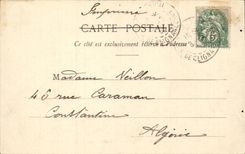 Imprimé
CARTE POSTALE
Ce côté est exclusivement réservé à l'adresse
Madame Veillon
45 rue Caraman
Constantine
Algérie